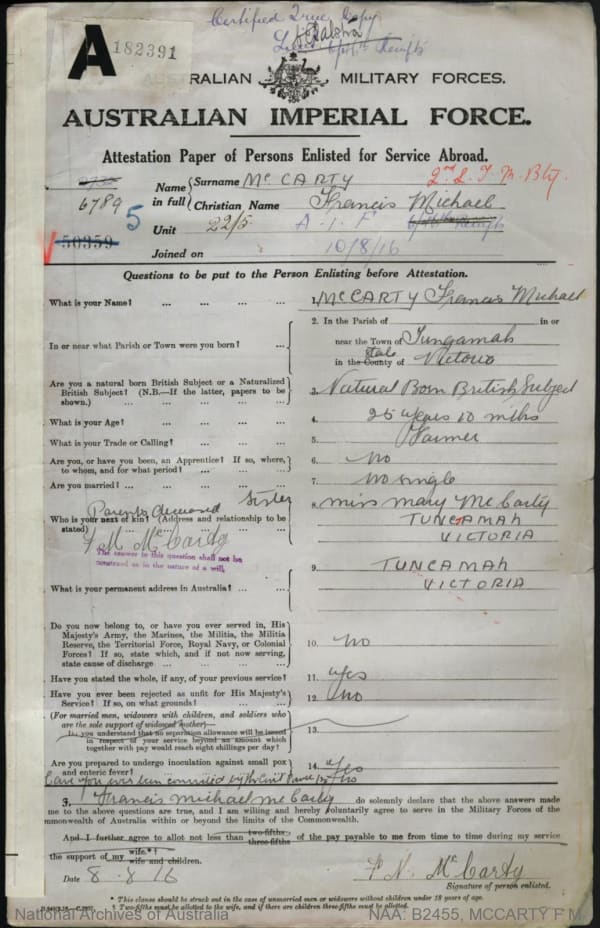 Certified True Copy
A
182391
AUSTRALIAN MILITARY FORCES.
AUSTRALIAN IMPERIAL FORCE.
Attestation Paper of Persons Enlisted for Service Abroad.
6789
5
50359
Name in full
Surname McCARTY
2nd L.T.M.Bty.
Christian Name Francis Michael
Unit 22/5 A.I.F
Joined on 10/8/16
Questions to be put to the Person Enlisting before Attestation.
What is your Name? ... ... ... 1. McCARTY Francis Michael
In or near what Parish or Town were you born? ... 2. In the Parish of in or
near the Town of Tungamah
in the County of State Victoria
Are you a natural born British Subject or a Naturalized British Subject? (N.B.—If the latter, papers to be shown.) ... ... ... 3. Natural Born British Subject
What is your Age? ... ... ... 4. 25 years 10 mths
What is your Trade or Calling? ... ... ... 5. Farmer
Are you, or have you been, an Apprentice? If so, where, to whom, and for what period? ... ... 6. No
Are you married? ... ... ... 7. No single
Parents deceased Sister
Who is your next of kin? (Address and relationship to be stated) ... ... ... 8. Miss Mary McCarty
TUNGAMAH
VICTORIA
F M McCarty
The answer to this question shall not be
construed as in the nature of a will.
What is your permanent address in Australia? ... ... 9. TUNCAMAH
VICTORIA
Do you now belong to, or have you ever served in, His
Majesty's Army, the Marines, the Militia, the Militia
Reserve, the Territorial Force, Royal Navy, or Colonial
Forces? If so, state which, and if not now serving,
state cause of discharge ... ... ... 10. No
Have you stated the whole, if any, of your previous service? 11. yes
Have you ever been rejected as unfit for His Majesty's
Service? If so, on what grounds? ... ... 12. No
(For married men, widowers with children, and soldiers who
are the sole support of widowed mother)—
Do you understand that no separation allowance will be issued
in respect of your service beyond an amount which
together with pay would reach eight shillings per day? 13.
Are you prepared to undergo inoculation against small pox
and enteric fever? ... ... ... 14. Yes
Have you ever been convicted by the Civil Power No
I, Francis Michael McCarty do solemnly declare that the above answers made
me to the above questions are true, and I am willing and hereby voluntarily agree to serve in the Military Forces of the
ommonwealth of Australia within or beyond the limits of the Commonwealth.
And I further agree to allot not less than two-fifths three-fifths of the pay payable to me from time to time during my service
the support of my wife.*† wife and children.
Date 8.8.16
F. M. McCarty
Signature of person enlisted.
* This clause should be struck out in the case of unmarried men or widowers without children under 18 years of age.
† Two-fifths must be allotted to the wife, and if there are children three-fifths must be allotted.
National Archives of Australia
NAA: B2455, MCCARTY F M